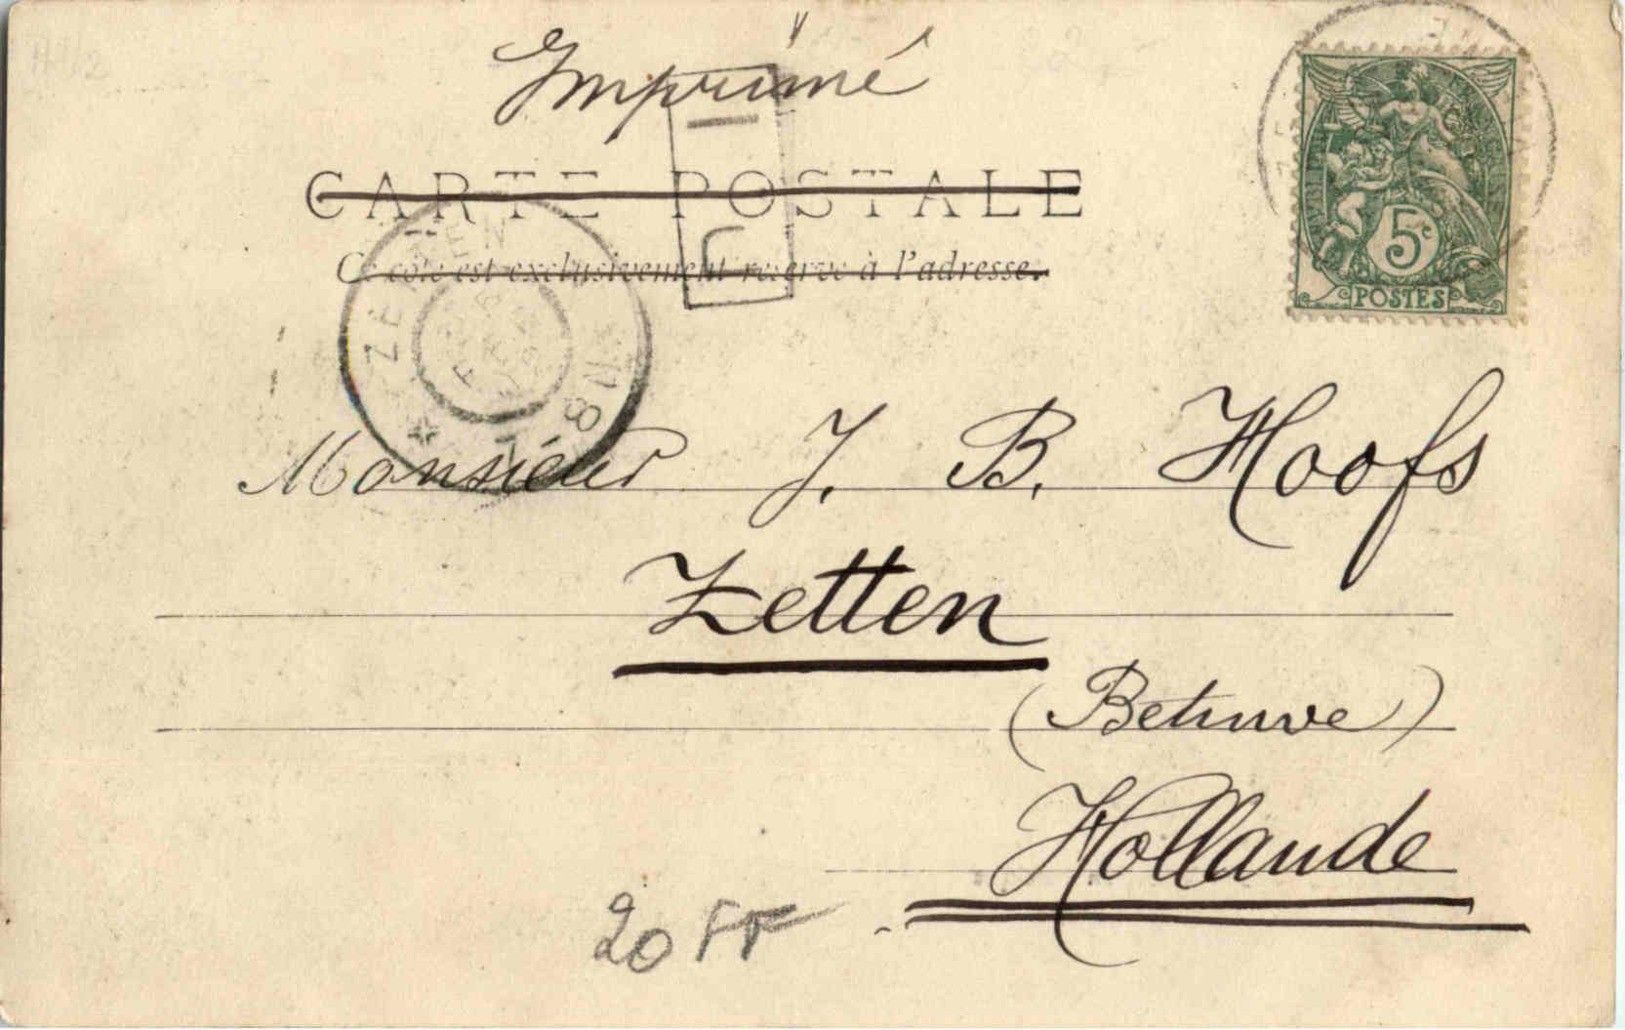 Imprimé
CARTE POSTALE
Ce côté est exclusivement réservé à l'adresse.
5c
POSTES
ZETTEN
8 N
Monsieur J. B. Hoofs
Zetten
(Betuwe)
Hollande
20 FF